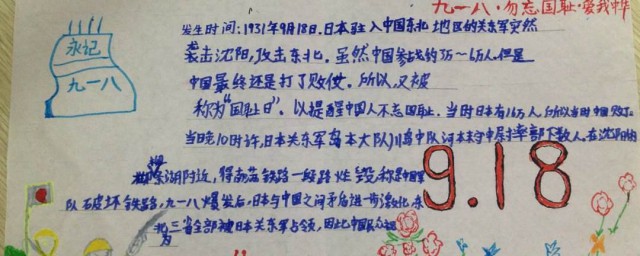 九一八·勿忘国耻·爱我中华
永记
九一八
发生时间：1931年9月18日,日本驻入中国东北地区的关东军突然
袭击沈阳,攻击东北。虽然中国参战约 人.但是
中国最终还是打了败仗。所以,又被
称为"国耻日"。以提醒中国人不忘国耻。当时日本有16万人,所以当时中国败了。
当晚10时许,日本关东军岛本大队川岛中队河本末守中尉率部下数人,在沈阳
湖附近,将南满铁路一段路炸毁,称是中国军
队破坏铁路,九一八爆发后,日本与中国之间矛盾进一步激化,东
北三省全部被日本关东军占领,因此中国民众
为
9.18